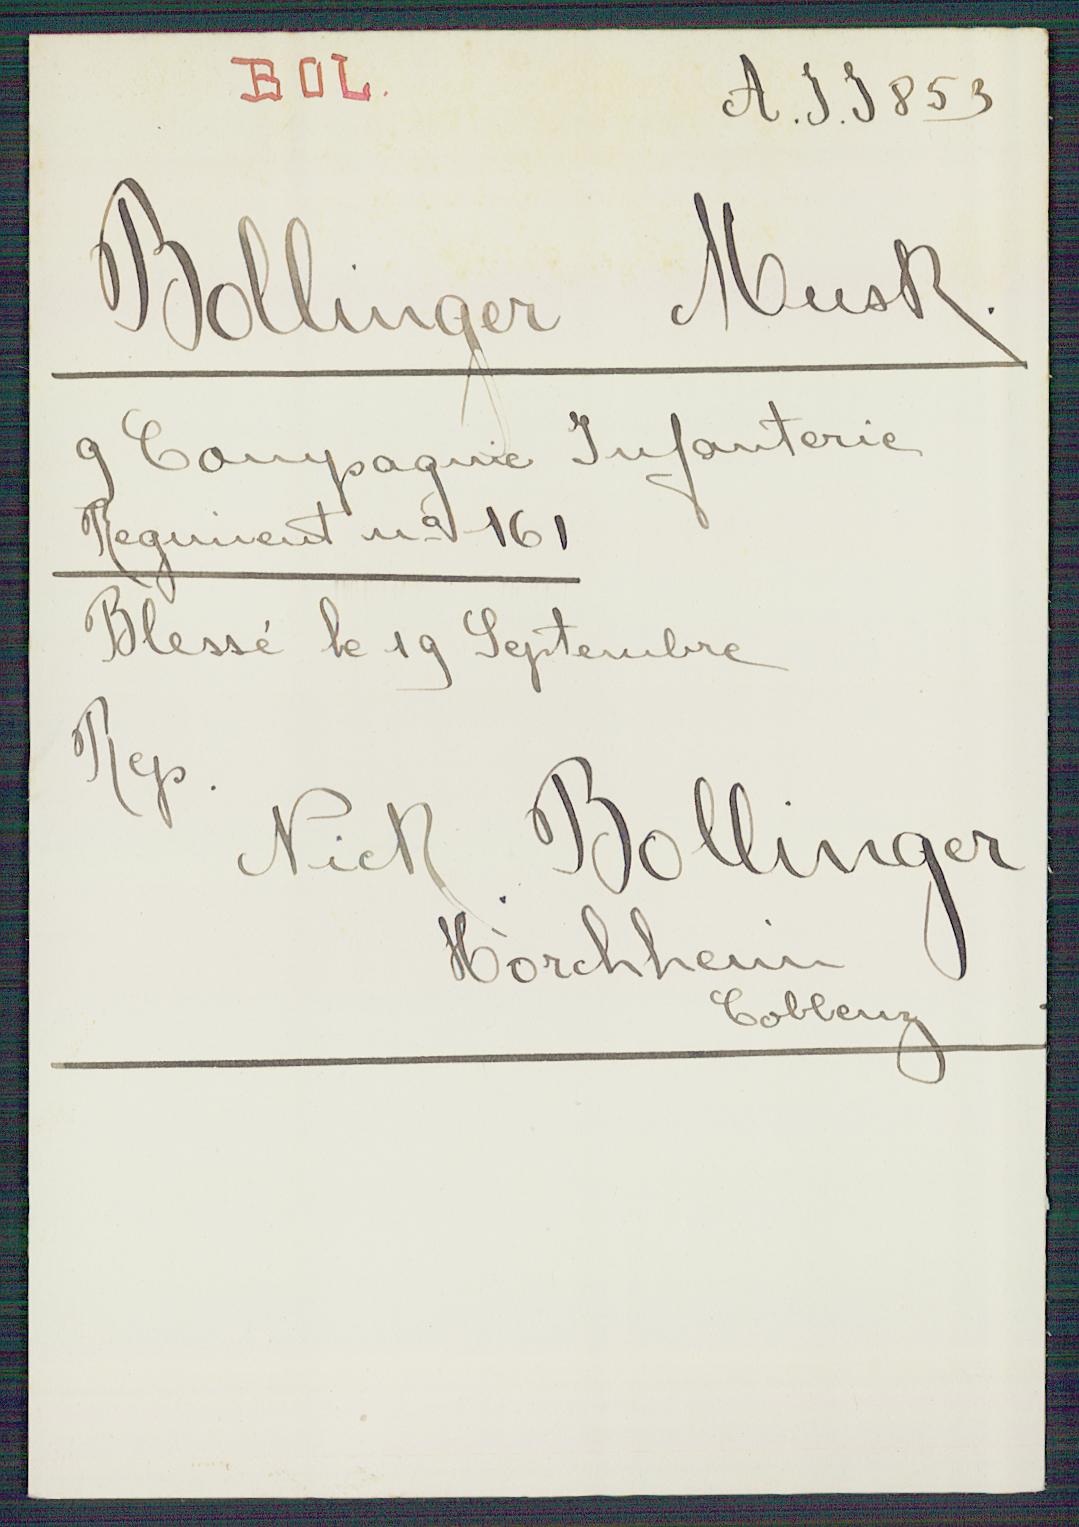 BOL.
A.J.J 853
Bollinger Musk.
9 Compagnie Infanterie
Regiment nº 161
Blessé le 19 Septembre
Rep.
Nick. Bollinger
Horchheim
Coblenz